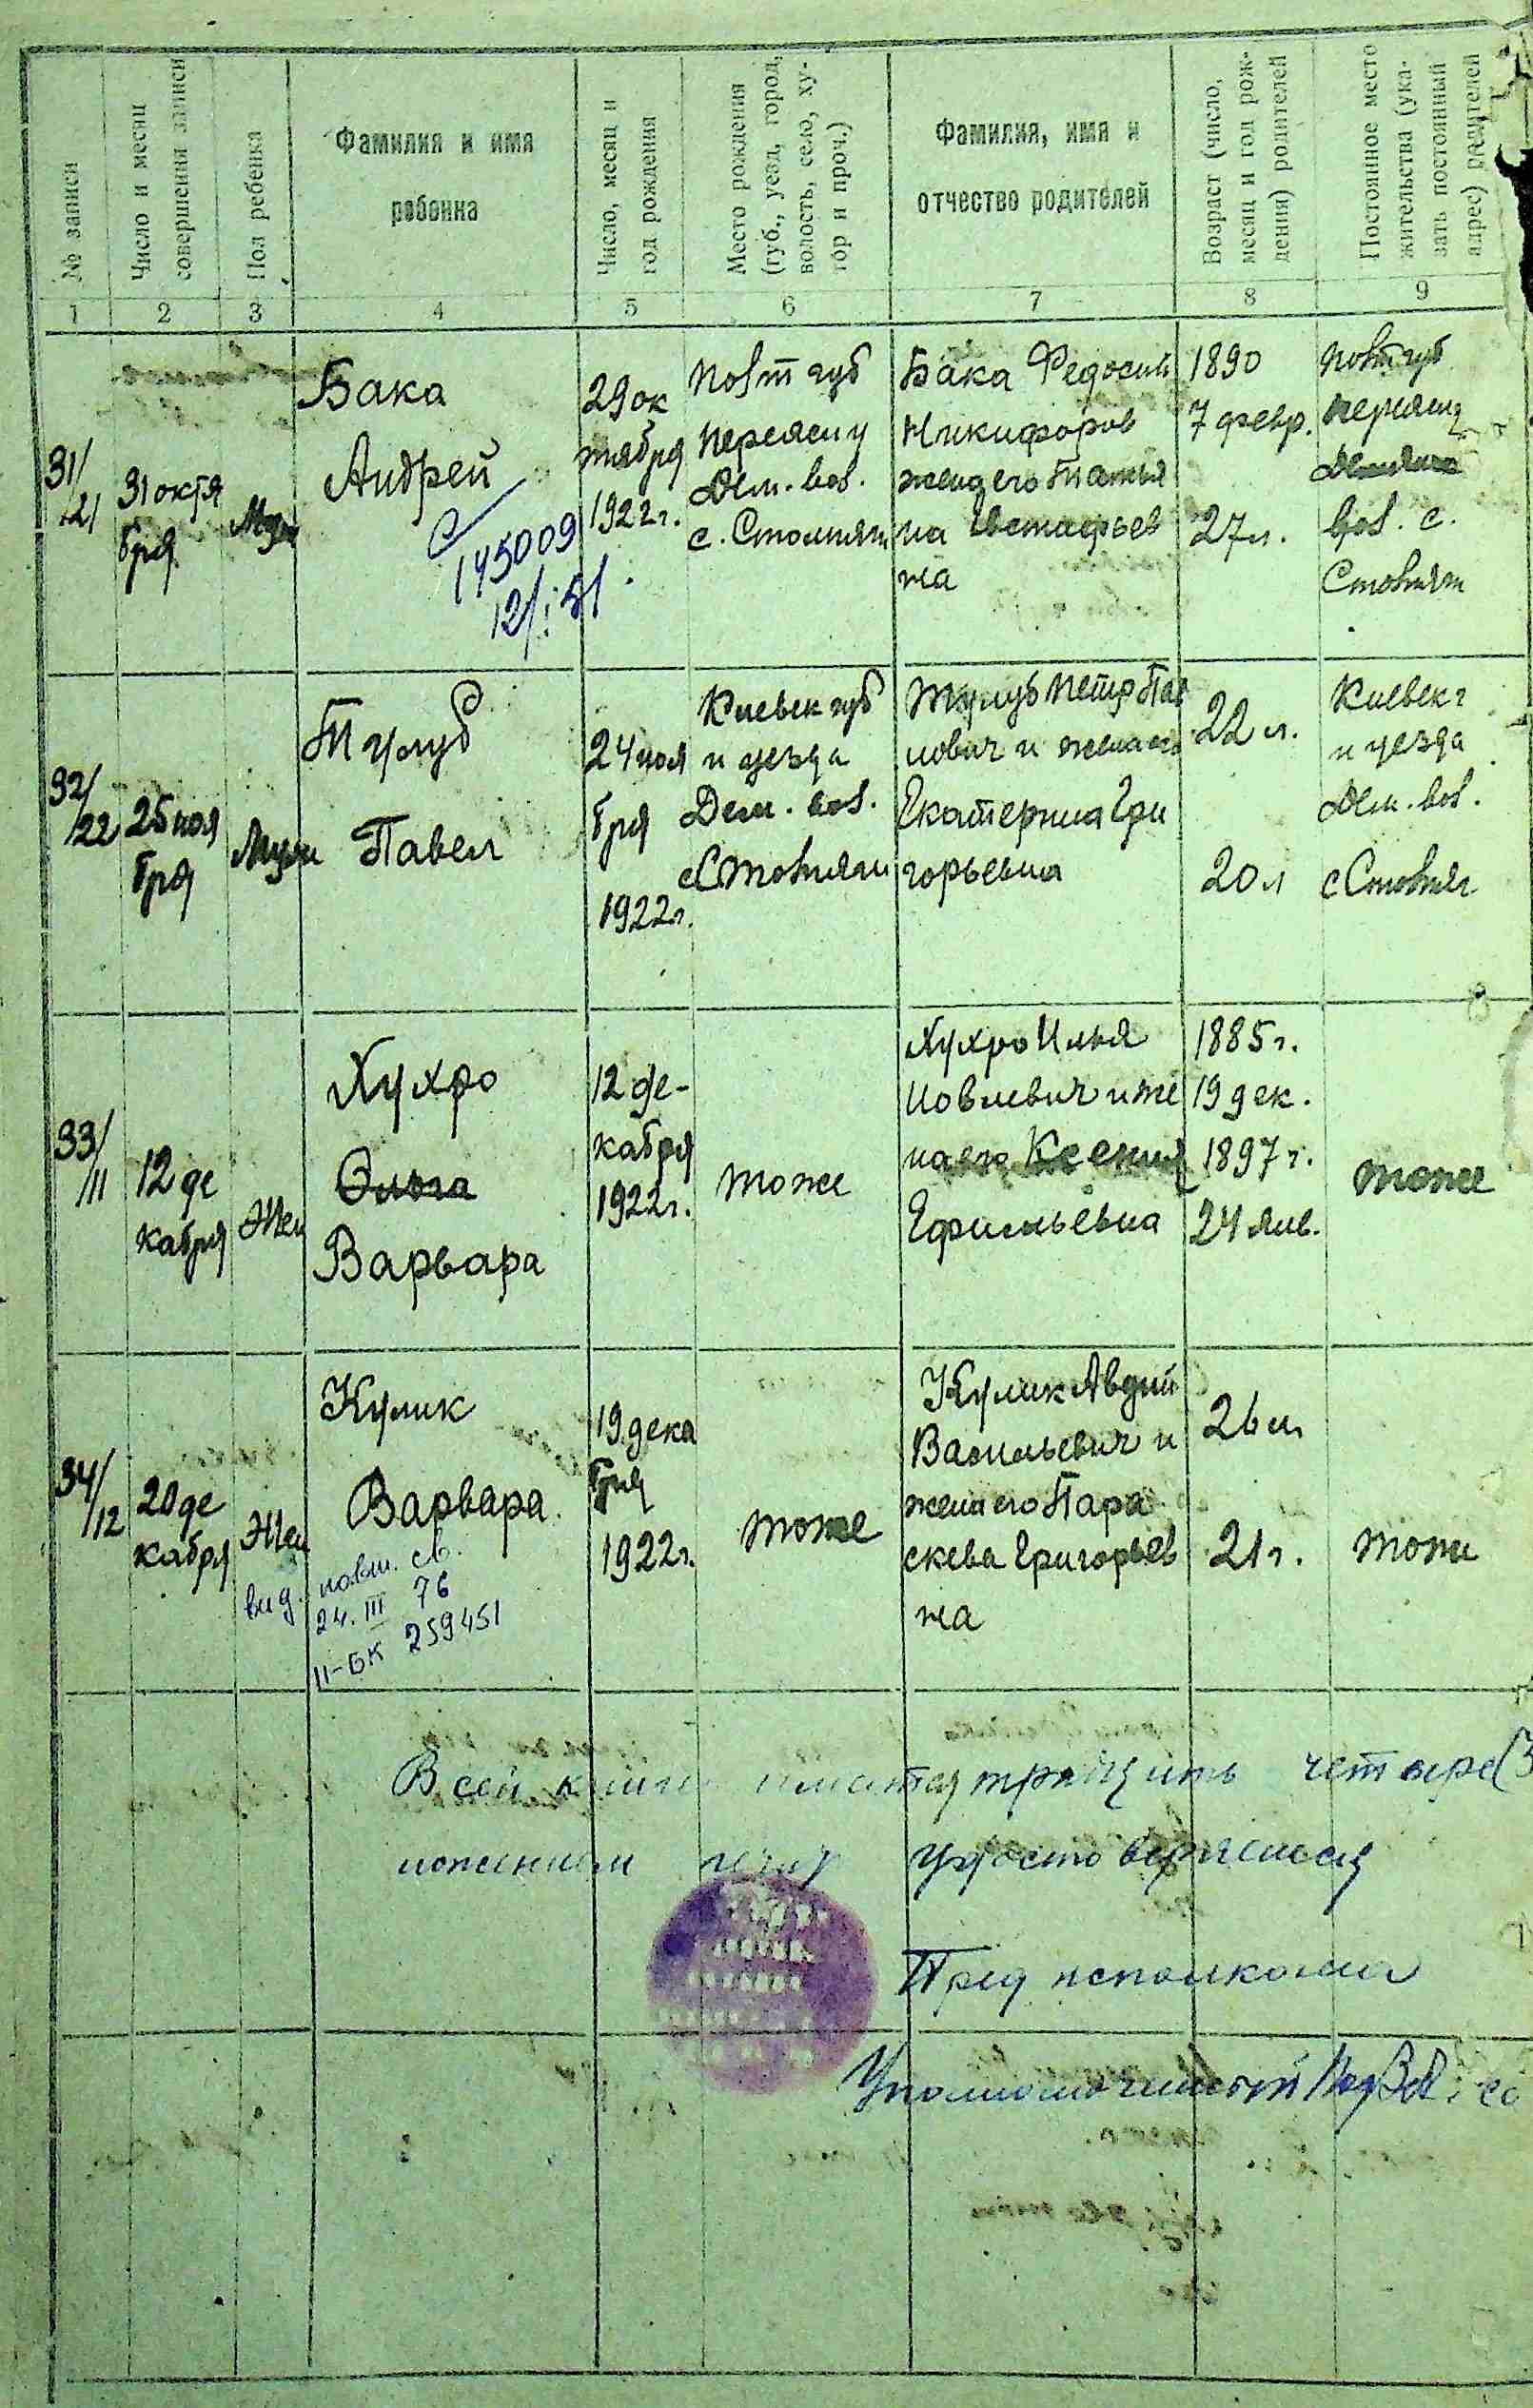 № записи
Число и месяц
совершения записи
Пол ребенка
Фамилия и имя
ребенка
Число, месяц и
год рождения
Место рождения
(губ., уезд, город,
волость, село, ху-
тор и проч.)
Фамилия, имя и
отчество родителей
Возраст (число,
месяц и год рож-
дения) родителей
Постоянное место
жительства (ука-
зать постоянный
адрес) родителей
1 2 3 4 5 6 7 8 9
31/
21
31 октя
бря
Муж
Бака
Андрей
145009
12/I 51
29 ок
тября
1922 г.
Полт губ
Переясл у
Дем. вол.
с. Столпяги
Бака Федосий
Никифоров
жена его Татья
на Евстафьев
на
1890
7 февр.
27 л.
Полт губ
Переясл у
вол. с.
Стовпяги
32/
/22
25 ноя
бря
Муж
Тулуб
Павел
24 ноя
бря
1922 г.
Киевск губ
и уезда
Дем. вол.
с Стовпяги
Тулуб Петр Пав
лович и жена его
Екатерина Гри
горьевна
22 л.
20 л
Киевск г
и уезда
Дем. вол.
с Стовпяг
33/
/11
12 де
кабря
Жен
Хухро
Ольга
Варвара
12 де-
кабря
1922 г.
тоже
Хухро Илья
Иовлевич и же
на его Ксения
Ефимьевна
1885 г.
19 дек.
1897 г.
24 янв.
тоже
34/
/12
20 де
кабря
Жен
Кулик
Варвара
вид. повт. св.
24. III 76
II-БК 259451
19 дека
бря
1922 г.
тоже
Кулик Авдий
Васильевич и
жена его Пара
скева Григорьев
на
26 л
21 г.
тоже
В сей книге имеется тридцать четыре (3
удостоверяется
Пред исполкома
Уполномоченный